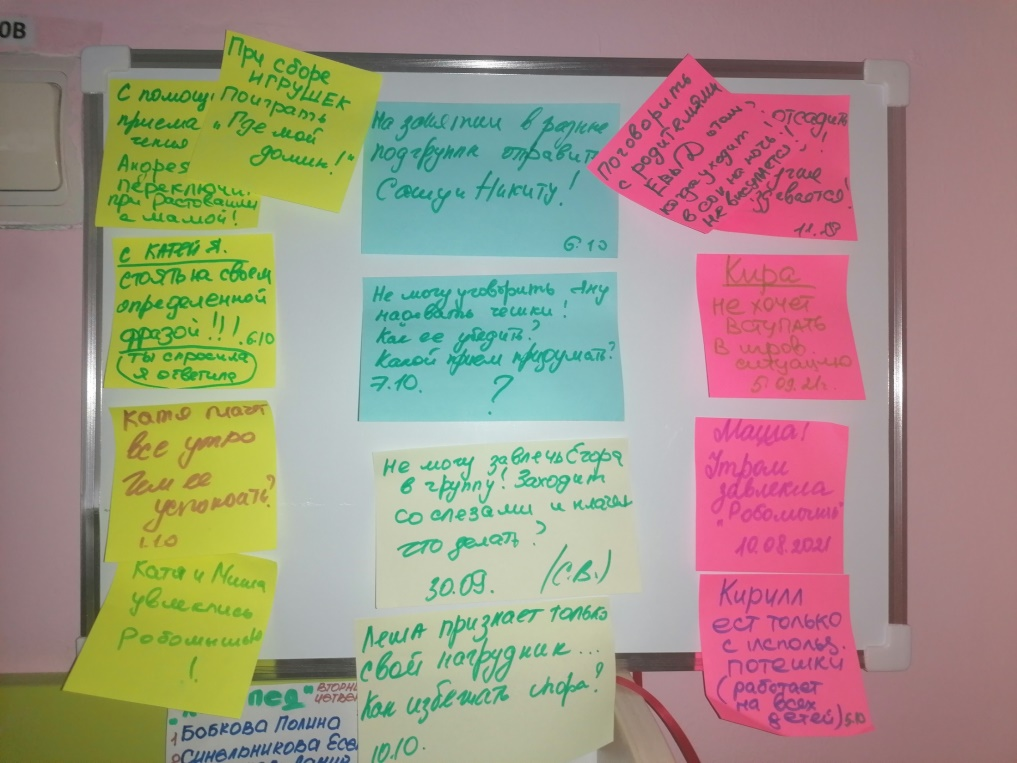 ОВ
При сборе
ИГРУШЕК
Поиграть
„Где мой
домик!"
С помощ
приема
чтения
Андрея
переключи
при расставании
с мамой!
С КАТЕЙ Я.
стоять на своем
определенной
фразой!!! 6.10
ты спросила
я ответила
Катя плачет
все утро
Чем ее
успокоать?
1.10
Катя и Миша
увлеклись
Робомышью
!
На занятии в разные
подгруппы отправить
Сашу и Никиту!
6.10
Не могу уговорить Яну
надевать чешки!
Как ее убедить?
Какой прием придумать?
7.10. ?
Не могу завлечь Егора
в группу! Заходит
со слезами и плачем
что делать?
30.09. (С.В.)
Леша признает только
свой нагрудник...
Как избежать спора?
10.10.
Поговорить
с родителями
Евы о том,
когда уходит
в сон, на ночь
не высупается!
отсадить
11.09
Кира
не хочет
вступать
в игров.
ситуацию
5.09.21г.
Маша!
Утром
завлекла
"Робомышь"
10.08.2021
Кирилл
ест только
с использ.
потешки
(работает
на всех
детей) 5.10
вторни
четверг
1 Бобкова Полина
Синельникова Есе